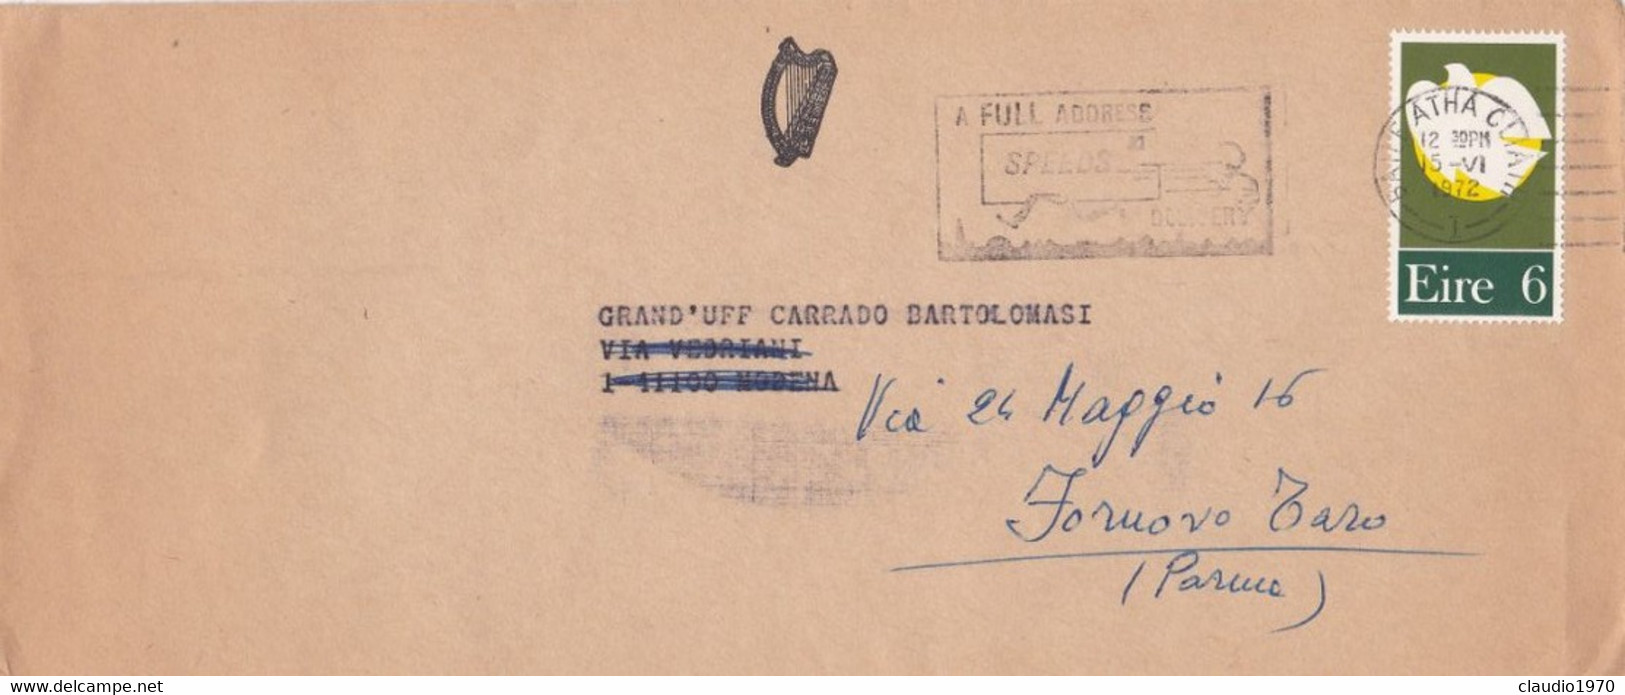 A FULL ADDRESS
SPEEDS
DELIVERY
BAILE ATHA CLIATH
12 30PM
15-VI
1972
1
Eire 6
GRAND'UFF CARRADO BARTOLOMASI
VIA VEDRIANI
1 41100 MODENA
Via 24 Maggio 16
Fornovo Taro
(Parma)
www.delcampe.net
claudio1970